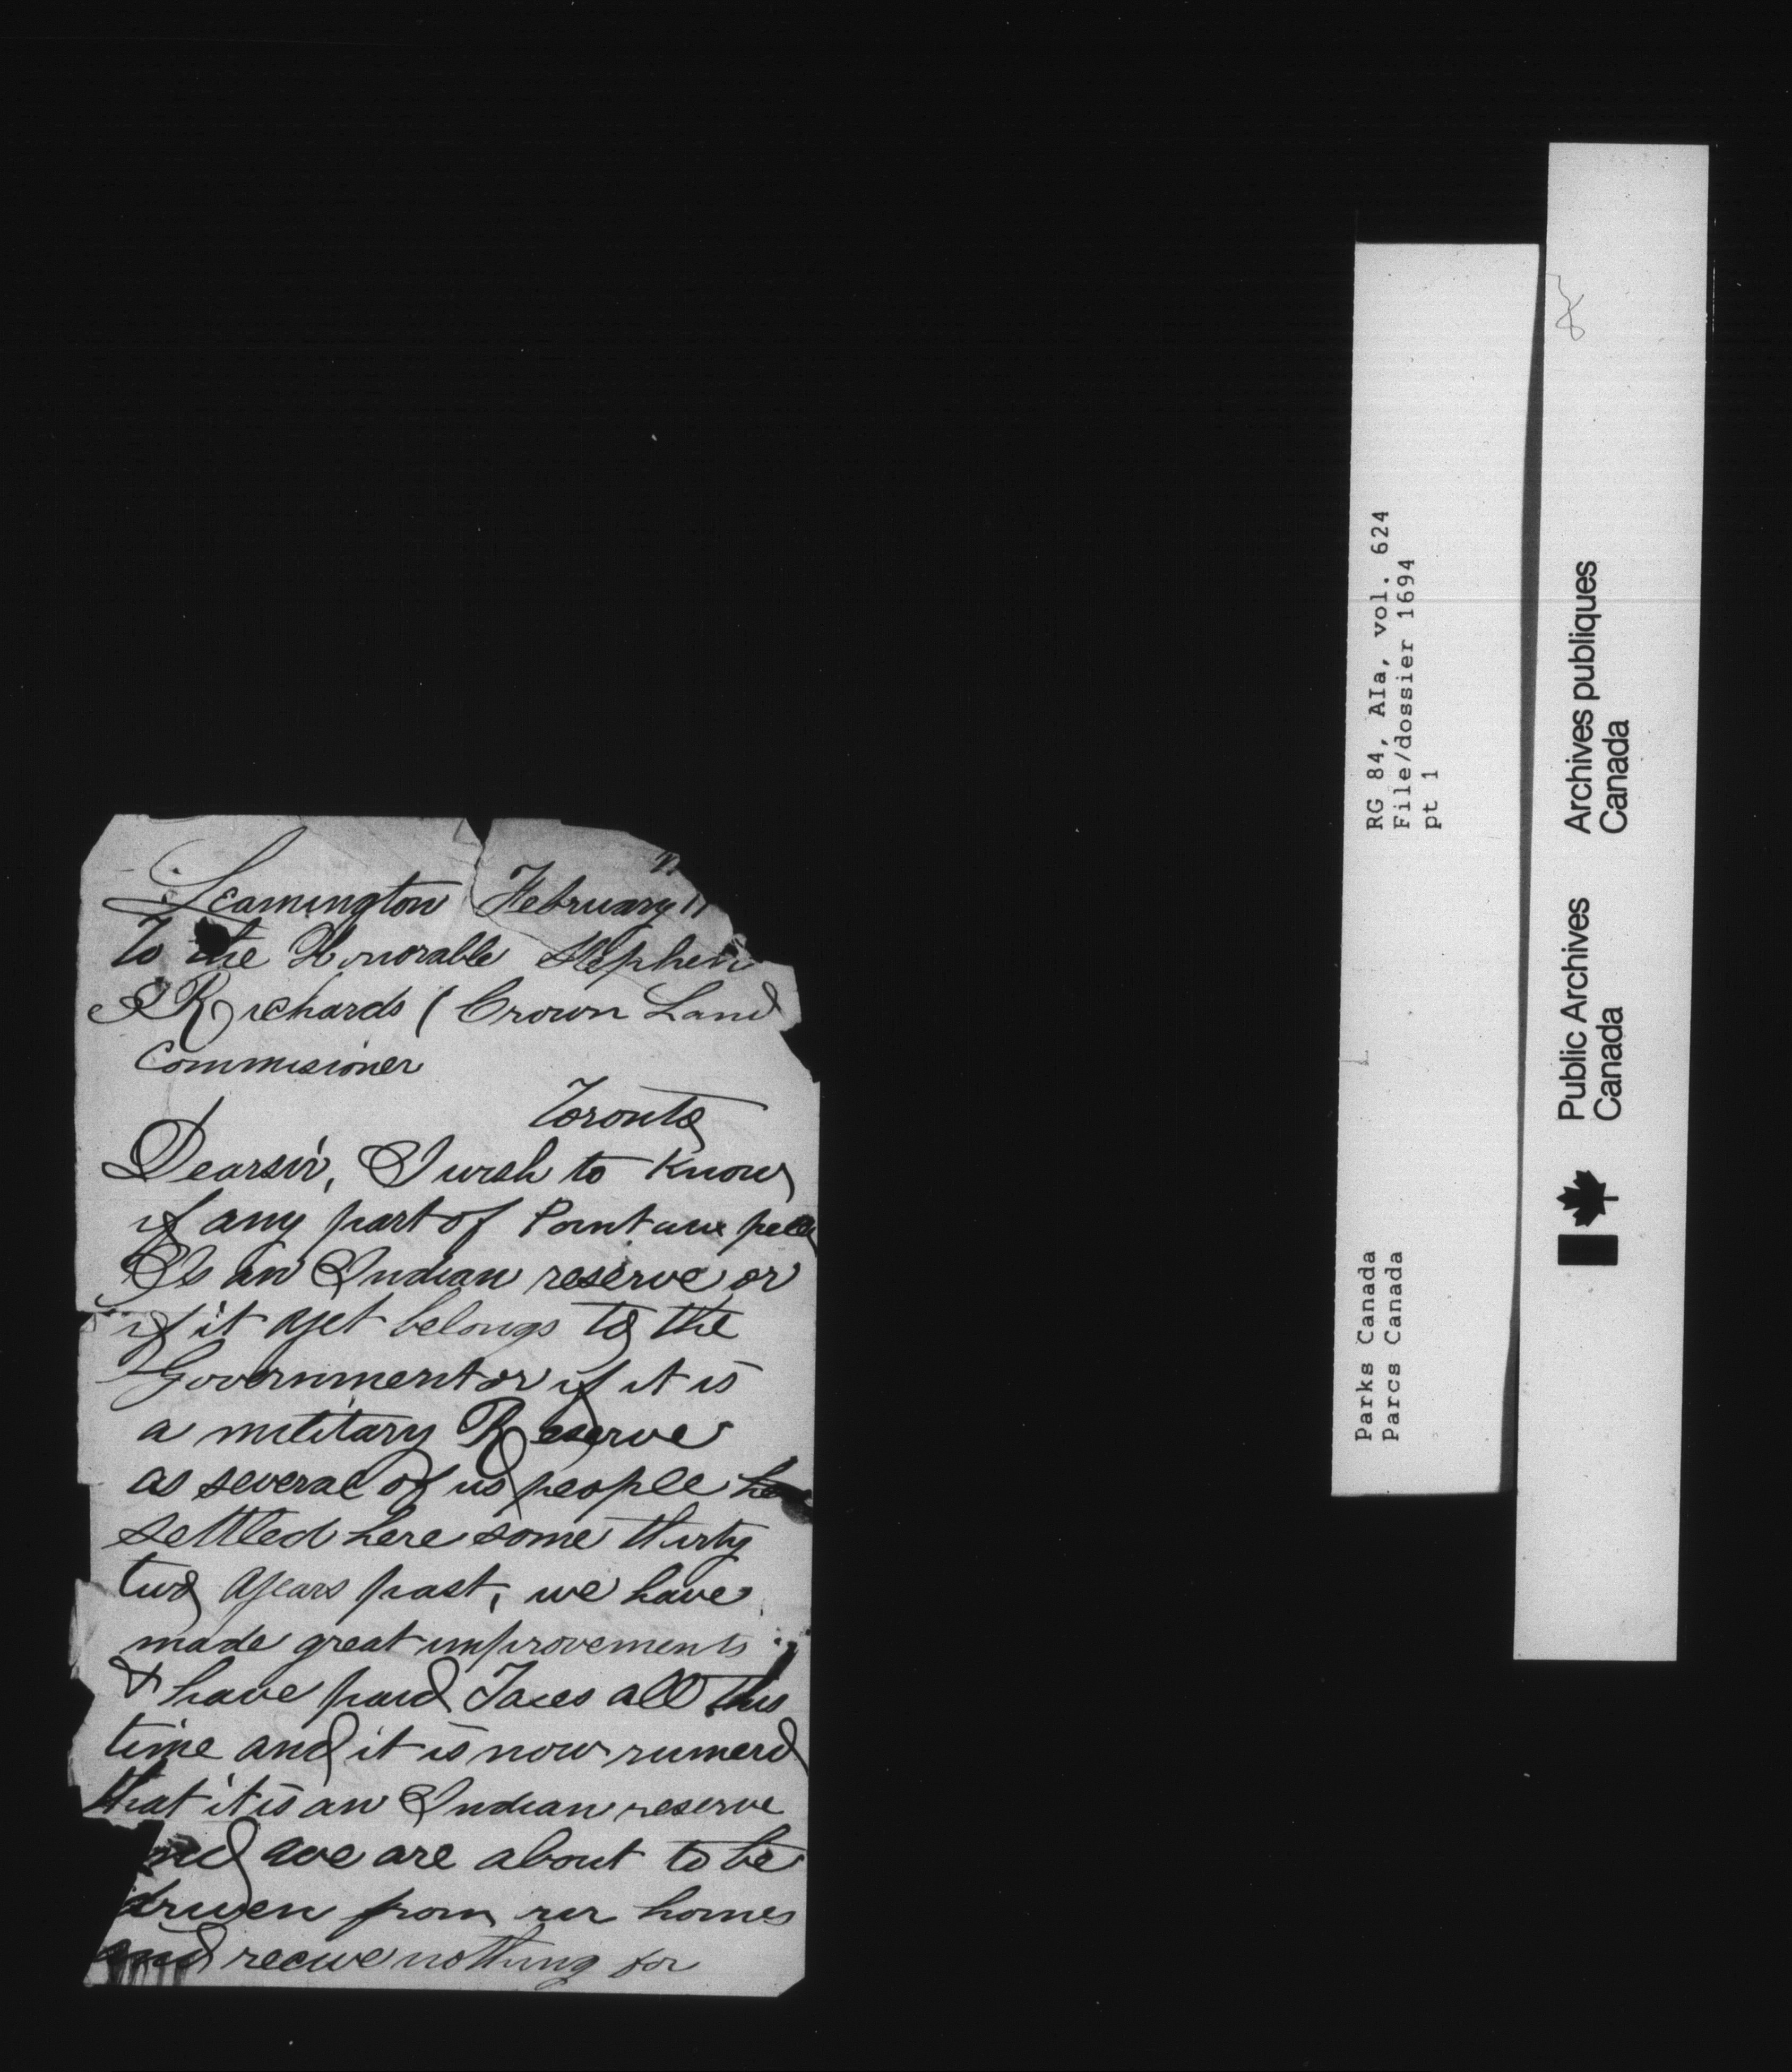 Leamington February 11
To the Honorable Stephen
Richards ( Crown Land
Commisioner
Toronto
Dearsir, I wish to know
if any part of Point au pelle
Is an Indian reserve or
if it yet belongs to the
Government or if it is
a military Reserve
as several of us people
settled here some thirty
two years past, we have
made great improvements
& have paid Taxes all this
time and it is now rumerd
that it is an Indian reserve
and we are about to be
driven from our homes
and recive nothing for
RG 84, AIa, vol. 624
File/dossier 1694
pt 1
Parks Canada
Parcs Canada
Public Archives
Canada
Archives publiques
Canada